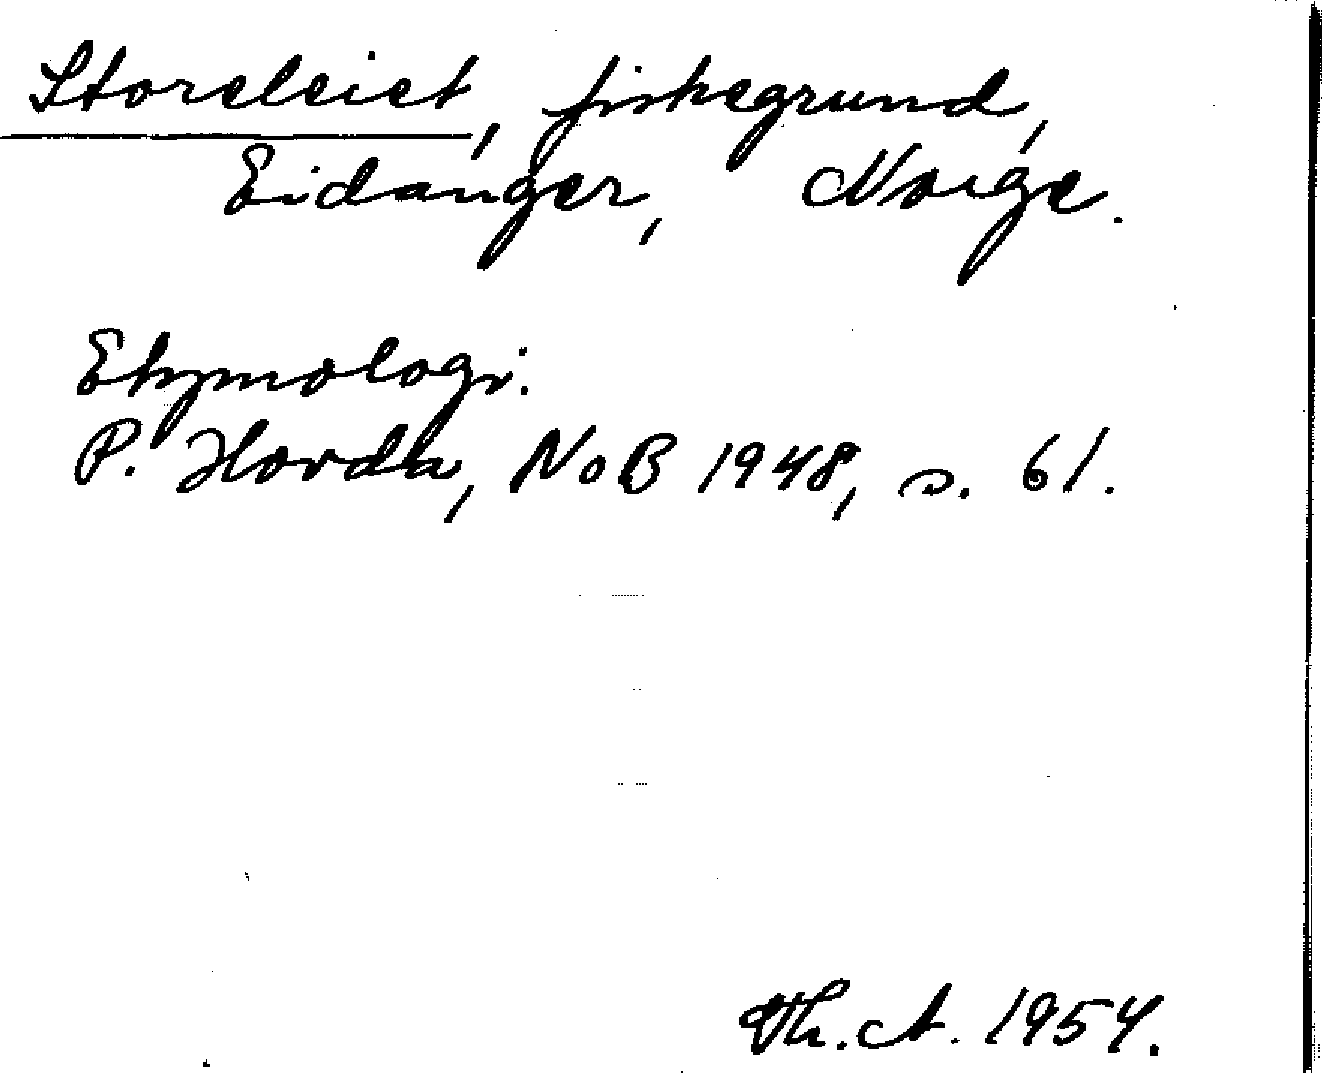 Storeleiet, fiskegrund,
Eidanger, Norge.
Etymologi.
P. Hovda, NoB 1948, s. 61.
Th. A. 1954.